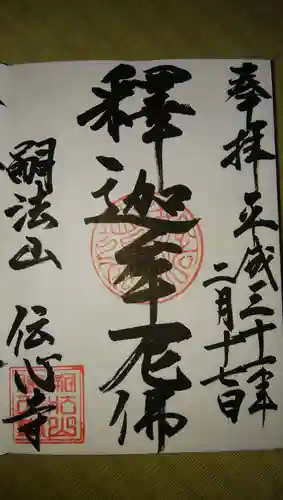 奉拝 平成三十一年
二月十七日
釋迦牟尼佛
嗣法山 伝心寺